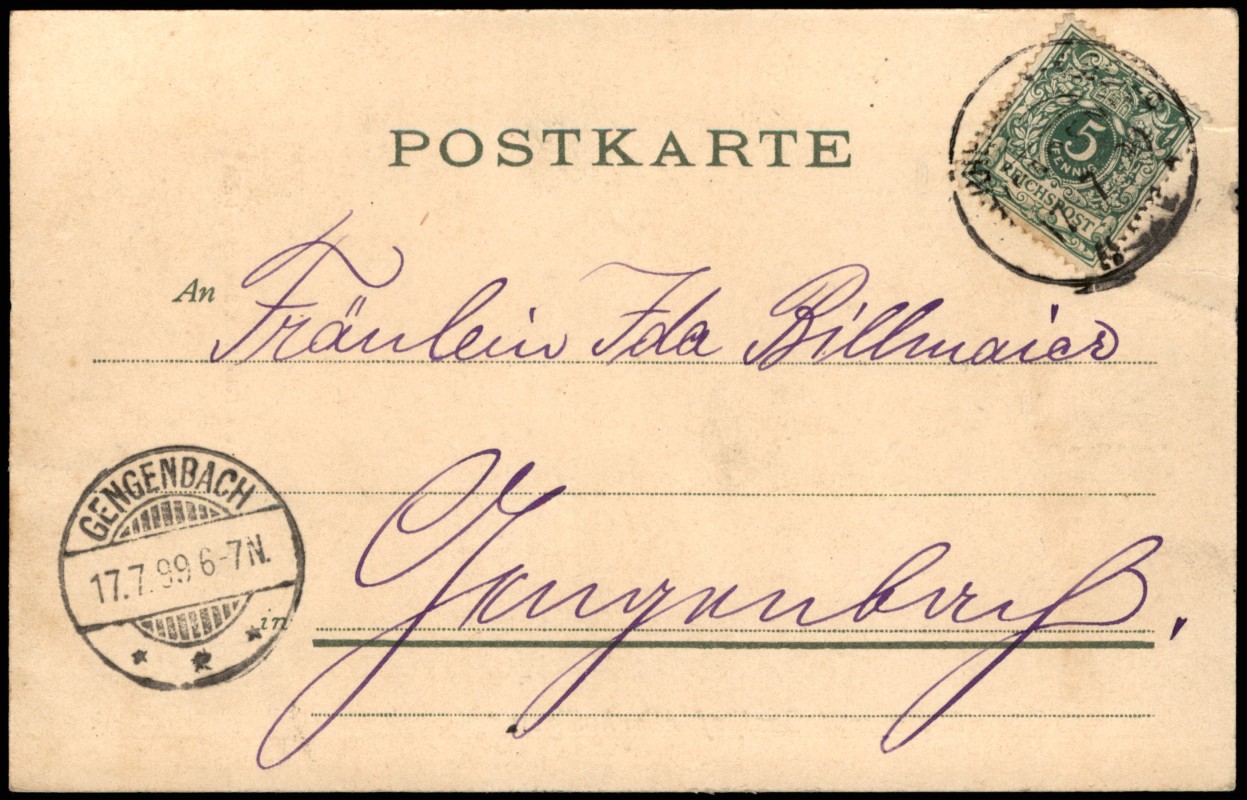 POSTKARTE
5
PFENNIG
REICHSPOST
An Fräulein Ida Billmaier
GENGENBACH
17.7.99 6-7N.
in Gengenbach.